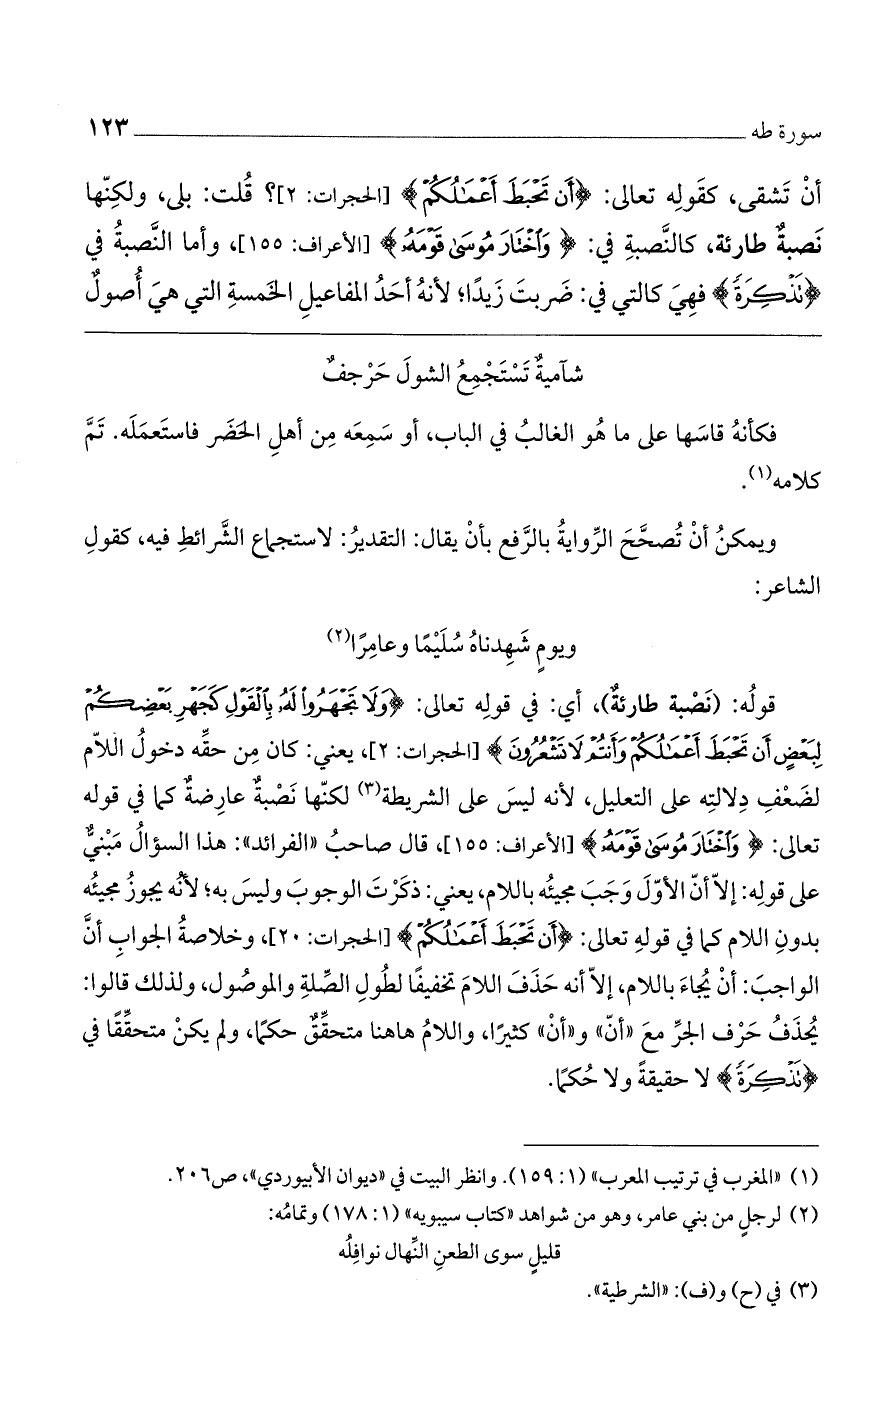 سورة طه ١٢٣
أنْ تَشقى، كقَولِه تعالى: ﴿أَن تَحْبَطَ أَعْمَٰلُكُمْ﴾ [الحجرات: ٢]؟ قُلت: بلى، ولكِنّها
نَصبةٌ طارئة، كالنَّصبةِ في: ﴿وَٱخْتَارَ مُوسَىٰ قَوْمَهُۥ﴾ [الأعراف: ١٥٥]، وأما النَّصبةُ في
﴿نَذْكِرَةً﴾ فهِيَ كالتي في: ضَربتَ زَيدًا؛ لأنهُ أحَدُ المفاعيلِ الخَمسةِ التي هيَ أُصولٌ
شآميةٌ تَسْتَجْمِعُ الشولَ حَرْجفٌ
فكأنهُ قاسَها على ما هُو الغالبُ في الباب، أو سَمِعَه مِن أهلِ الحَضَر فاستَعمَلَه. تَمَّ
كلامه(١).
ويمكنُ أنْ تُصحَّحَ الرِّوايةُ بالرَّفع بأنْ يقال: التقديرُ: لاستجماع الشَّرائطِ فيه، كقولِ
الشاعر:
ويومٍ شَهِدناهُ سُلَيْمًا وعامِرًا(٢)
قولُه: (نَصْبة طارئةٌ)، أي: في قولِه تعالى: ﴿وَلَا تَجْهَرُوا۟ لَهُۥ بِٱلْقَوْلِ كَجَهْرِ بَعْضِكُمْ
لِبَعْضٍ أَن تَحْبَطَ أَعْمَٰلُكُمْ وَأَنتُمْ لَا تَشْعُرُونَ﴾ [الحجرات: ٢]، يعني: كان مِن حقِّه دخولُ اللّام
لضَعْفِ دِلالتِه على التعليل، لأنه ليسَ على الشريطة(٣) لكنّها نَصْبةٌ عارِضةٌ كما في قوله
تعالى: ﴿وَٱخْتَارَ مُوسَىٰ قَوْمَهُۥ﴾ [الأعراف: ١٥٥]، قال صاحبُ «الفرائد»: هذا السؤالُ مَبْنيٌّ
على قولِه: إلّا أنّ الأوّلَ وَجَبَ مجيئُه باللام، يعني: ذكَرْتَ الوجوبَ وليسَ به؛ لأنُه يجوزُ مجيئُه
بدونِ اللام كما في قولهِ تعالى: ﴿أَن تَحْبَطَ أَعْمَٰلُكُمْ﴾ [الحجرات: ٢٠]، وخلاصةُ الجوابِ أنَّ
الواجبَ: أنْ يُجاءَ باللام، إلّا أنه حَذَفَ اللامَ تخفيفًا لطُولِ الصِّلةِ والموصُول، ولذلك قالوا:
يُحذَفُ حَرْف الجرِّ معَ «أنّ» و«أنْ» كثيرًا، واللامُ هاهنا متحقِّقٌ حكمًا، ولم يكنْ متحقِّقًا في
﴿نَذْكِرَةً﴾ لا حقيقةً ولا حُكمًا.
(١) «المغرب في ترتيب المعرب» (١: ١٥٩). وانظر البيت في «ديوان الأبيوردي»، ص٢٠٦.
(٢) لرجلٍ من بني عامر، وهو من شواهد «كتاب سيبويه» (١: ١٧٨) وتمامُه:
قليلٍ سوى الطعنِ النِّهال نوافِلُه
(٣) في (ح) و(ف): «الشرطية».